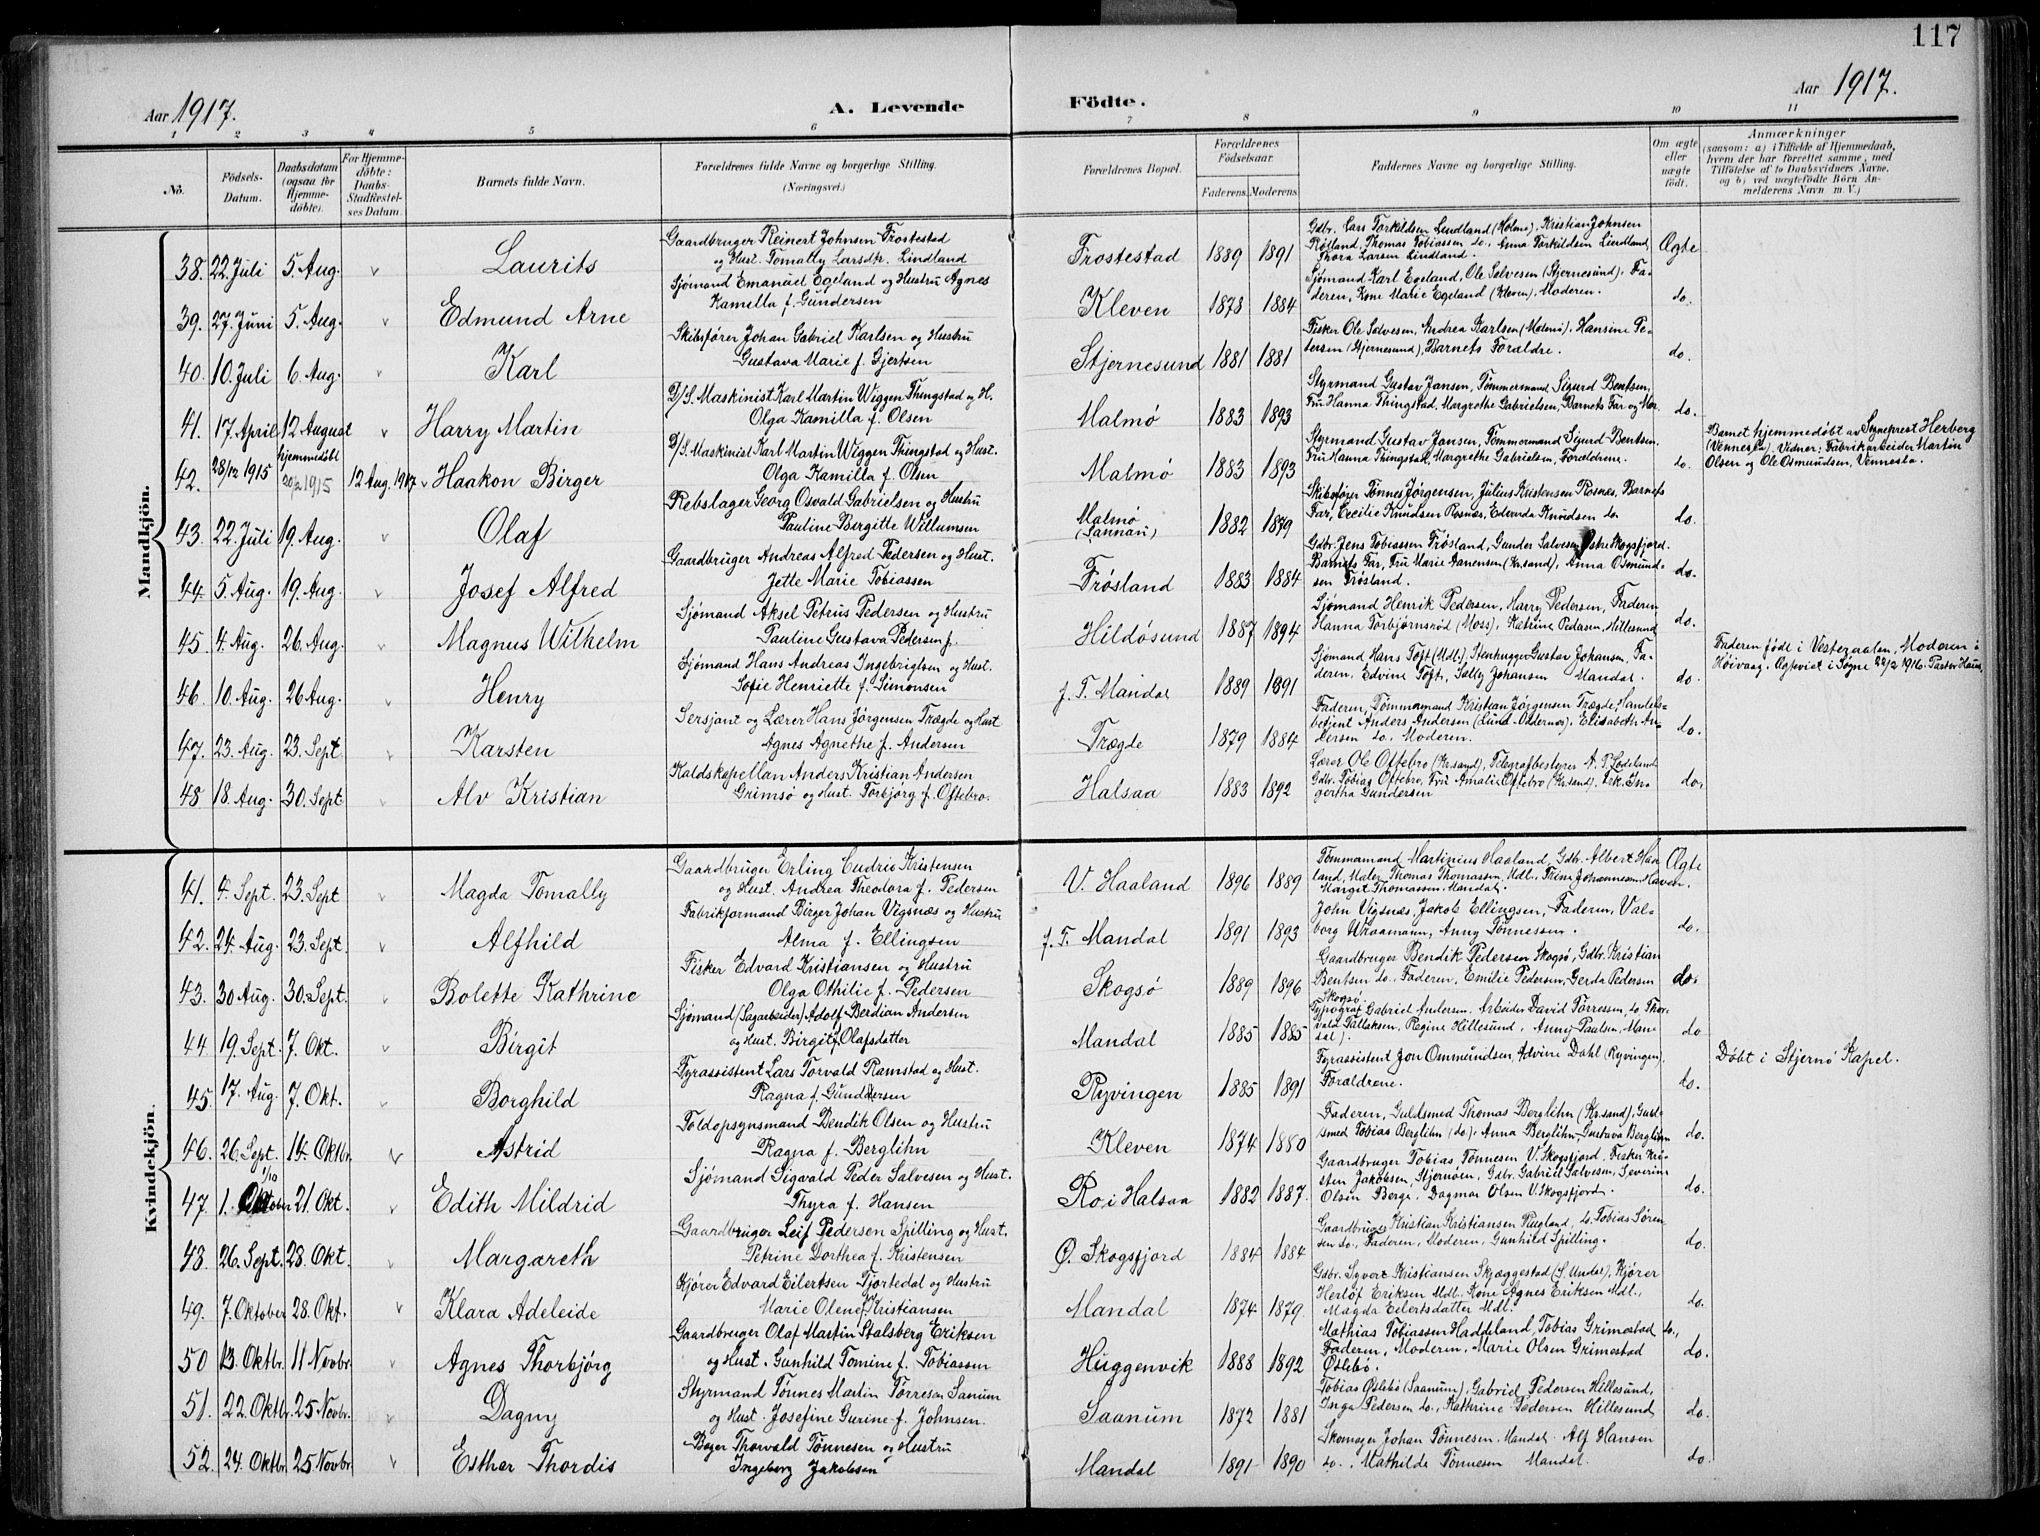 117
Aar 1917.
A. Levende
Födte.
Aar 1917.
1 2 3 4 5 6 7 8 9 10 11
No.
Födsels-
Datum.
Daabsdatum
(ogsaa for
Hjemme-
döbte).
For Hjemme-
döbte:
Daabs-
Stadfæstel-
ses Datum.
Barnets fulde Navn.
Forældrenes fulde Navne og borgerlige Stilling.
(Næringsvei.)
Forældrenes Bopæl.
Forældrenes
Födselsaar.
Faderens. Moderens.
Faddernes Navne og borgerlige Stilling.
Om ægte
eller
uægte
födt.
Anmærkninger
(saasom: a) i Tilfælde af Hjemmedaab,
hvem der har forrettet samme, med
Tilföielse af to Daabsvidners Navne.
og b) ved uægtefödte Börn An-
melderens Navn m. V.)
Mandkjön.
38. 22. Juli 5. Aug. v Laurits
Gaardbruger Reinert Johnsen Frostestad
og Hust. Tomally Larsdtr. Lindland
Frostestad 1889 1891
Gdbr. Lars Torkildsen Lindland (Holme), Kristian Johnsen
Røiland, Thomas Tobiassen do., Anna Torkildsen Lindland,
Thora Larsen Lindland.
Ægte
39. 27. Juni 5. Aug. v Edmund Arne
Sjømand Emanuel Egeland og Hustru Agnes
Kamilla f. Gundersen
Kleven 1878 1884
Sjømand Karl Egeland, Ole Salvesen (Stjernesund). Fa-
deren, Kone Marie Egeland (Kleven), Moderen.
do.
40. 10. Juli 6. Aug. v Karl
Skibsfører Johan Gabriel Karlsen og Hustru
Gustava Marie f. Gjertsen
Stjernesund 1881 1881
Fisker Ole Salvesen, Andrea Karlsen (Malmø), Hansine Pe-
tersen (Stjernesund), Barnets Forældre.
do.
41. 17. April 12 August v Harry Martin
D/S. Maskinist Karl Martin Wiggen Thingstad og H.
Olga Kamilla f. Olsen
Malmø 1883 1893
Styrmand Gustav Jansen, Tømmermand Sigurd Bentsen,
Fru Hanna Thingstad, Margrethe Gabrielsen, Barnets Far og Mor.
do.
42. 28/12 1915 hjemmedøbt 1915 12 Aug. 1917 v Haakon Birger
D/S. Maskinist Karl Martin Wiggen Thingstad og Hust.
Olga Kamilla f. Olsen
Malmø 1883 1893
Styrmand Gustav Jansen, Tømmermand Sigurd Bentsen.
Fru Hanna Thingstad, Margrethe Gabrielsen, Forældrene.
do.
Barnet hjemmedøbt av Sogneprest Herberg
(Vennesla). Vidner: Fabrikarbeider Martin
Olsen og Ole Osmundsen, Vennesla.
43. 22. Juli 19. Aug. v Olaf
Rebslager Georg Osvald Gabrielsen og Hustru
Pauline Birgitte Willumsen
Malmø
(Sannan) 1882 1879
Skibsfører Tønnes Jørgensen, Julius Kristensen Rosnæs, Barnets
Far, Cecilie Knudsen Rosnæs, Edvarda Knudsen do.
do.
44. 5. Aug. 19. Aug. v Josef Alfred
Gaardbruger Andreas Alfred Pedersen og Hust.
Jette Marie Tobiassen
Frøsland 1883 1884
Gdbr. Jens Tobiassen Frøsland, Gunder Salvesen Østre Skogsfjord.
Barnets Far, Fru Marie Aanensen (Kr.sand), Anna Osmund-
sen Frøsland.
do.
45. 4. Aug. 26. Aug. v Magnus Wilhelm
Sjømand Aksel Petrus Pedersen og Hustru
Pauline Gustava Pedersen f.
Hildøsund 1887 1894
Sjømand Henrik Pedersen, Harry Pedersen, Faderen
Hanna Torbjørnsrød (Moss), Katrine Pedersen, Hillesund
do.
46. 10. Aug. 26. Aug. v Henry
Sjømand Hans Andreas Ingebrigtsen og Hust.
Sofie Henriette f. Simonsen
f. T. Mandal 1889 1891
Sjømand Hans Toft (Mdl.), Stenhugger Gustav Johansen, Fa-
deren, Edvine Toft, Sally Johansen Mandal.
do.
Faderen født i Vesteraalen, Moderen i
Høivaag. Ægteviet i Søgne 22/2 1916.
47. 23. Aug. 23. Sept v Karsten
Sersjant og Lærer Hans Jørgensen Trægde og Hust
Agnes Agnethe f. Andersen
Trægde 1879 1884
Faderen, Tømmermand Kristian Jørgensen Trægde, Handels-
betjent Anders Andersen (Lund-Oddernes), Elisabeth An-
dersen do. Moderen.
do.
48 18. Aug. 30. Sept v Alv Kristian
Kaldskapellan Anders Kristian Andersen
Grimsø og Hust. Torbjørg f. Oftebro.
Halsaa 1883 1892
Lærer Ole Oftebro (Kr.sand), Telegrafbestyrer A. T. Lødeland
Gdbr. Tobias Oftebro, Fru Amalie Oftebro (Kr.sand), Frk. Ing
gertha Gundersen
do.
Kvindekjön.
41. 4. Sept. 23. Sept v Magda Tomally
Gaardbruger Erling Kristensen
og Hust. Andrea Theodora f. Pedersen
V. Haaland 1896 1889
Tømmermand Martinius Haaland, Gdbr. Albert Haa
land, Maler Thomas Thomassen Mdl., Trine Johannesen Haven.
Margit Thomassen. Mandal.
Ægte
42. 24. Aug. 23. Sept v Alfhild
Fabrikformand Birger Johan Vigsnæs og Hustru
Alma f. Ellingsen
f. T. Mandal 1891 1893
John Vigsnæs, Jakob Ellingsen, Faderen, Val-
borg Wraamann, Anny Tønnessen.
do.
43. 30 Aug. 30. Sept. v Bolette Kathrine
Fisker Edvard Kristiansen og Hustru
Olga Othilie f. Pedersen
Skogsø 1889 1896
Gaardbruger Bendik Pedersen Skogsø, Gdbr. Kristian
Bentsen do., Faderen, Emilie Pedersen, Gerda Pedersen
Skogsø.
do.
44 19. Sept. 7. Okt. v Birgit
Sjømand (Sagarbeider) Adolf Berdian Andersen
og Hust. Birgit f. Olafsdatter
Mandal 1885 1885
Typograf Gabriel Andersen. Arbeider David Tørressen, do. Thor
vald Tallaksen, Regine Hillesund, Anny Paulsen, Man-
dal).
do
45. 17. Aug. 7. Okt. v Borghild
Fyrassistent Lars Torvald Ramstad og Hust.
Ragna f. Gundersen
Ryvingen 1885 1891
Fyrassistent Jon Ommundsen, Advine Dahl (Ryvingen),
Forældrene.
do.
Døbt i Stjernø Kapel.
46. 26. Sept. 14. Oktbr. v Astrid
Toldopsynsmand Bendik Olsen og Hustru
Ragna f. Berglihn
Kleven 1874 1880
Faderen, Guldsmed Thomas Berglihn (Kr.sand), Guld-
smed Tobias Berglihn (do.), Anna Berglihn, Gustava Berglihn
do.
47. 1. Oktober 1/10 21. Okt. v Edith Mildrid
Sjømand Sigvald Peder Salvesen og Hust.
Thyra f. Hansen
Ro i Halsaa 1882 1887.
Gaardbruger Tobias Tønnesen V. Skogsfjord. Fisker Kri-
sten Jakobsen, Stjernøen, Gdbr. Gabriel Salvesen, Severine
Olsen Berge, Dagmar Olsen V. Skogsfjord.
do.
48. 26. Sept. 28. Okt. v Margareth
Gaardbruger Leif Pedersen Spilling og Hust.
Petrine Dorthea f. Kristensen
Ø. Skogsfjord 1884 1884
Gaardbruger Kristian Kristiansen Rugland, do. Tobias Søren
sen do., Faderen, Moderen, Gunhild Spilling.
do.
49. 7. Oktober 28. Okt. v Klara Adeleide
Kjører Edvard Eilertsen Tjortedal og Hustru
Marie Olene Kristiansen
Mandal 1874 1879.
Gdbr. Syvert Kristiansen Skjæggestad (S. Undal), Kjører
Herlof Eriksen Mdl. Kone Agnes Eriksen Mdl.,
Magda Eilertsdatter Mdl.
do.
50 13. Oktbr. 11 Novbr. v Agnes Thorbjørg
Gaardbruger Olaf Martin Stalsberg Eriksen
og Hust. Gunhild Tomine f. Tobiassen
Huggenvik 1888 1892
Mathias Tobiassen Haddeland, Tobias Grimestad do.,
Faderen, Moderen, Marie Olsen Grimestad
Øslebø.
do.
51. 22. Oktbr. 25 Novbr. v Dagny
Styrmand Tønnes Martin Tørresen Sanum
og Hust. Josefine Gurine f. Johnsen.
Saanum 1872 1881
Tobias Øslebø (Saanum), Gabriel Pedersen Hillesund,
Inga Pedersen do., Kathrine Pedersen Hillesund
do.
52. 24. Oktbr. 25 Novbr. v Esther Thordis
Bager Thorvald Tønnesen og Hustru
Ingeborg Jakobsen
Mandal 1891 1890
Skomager Johan Tønnesen. Mandal. Alf Hansen
do., Mathilde Tønnesen Mandal.
do.